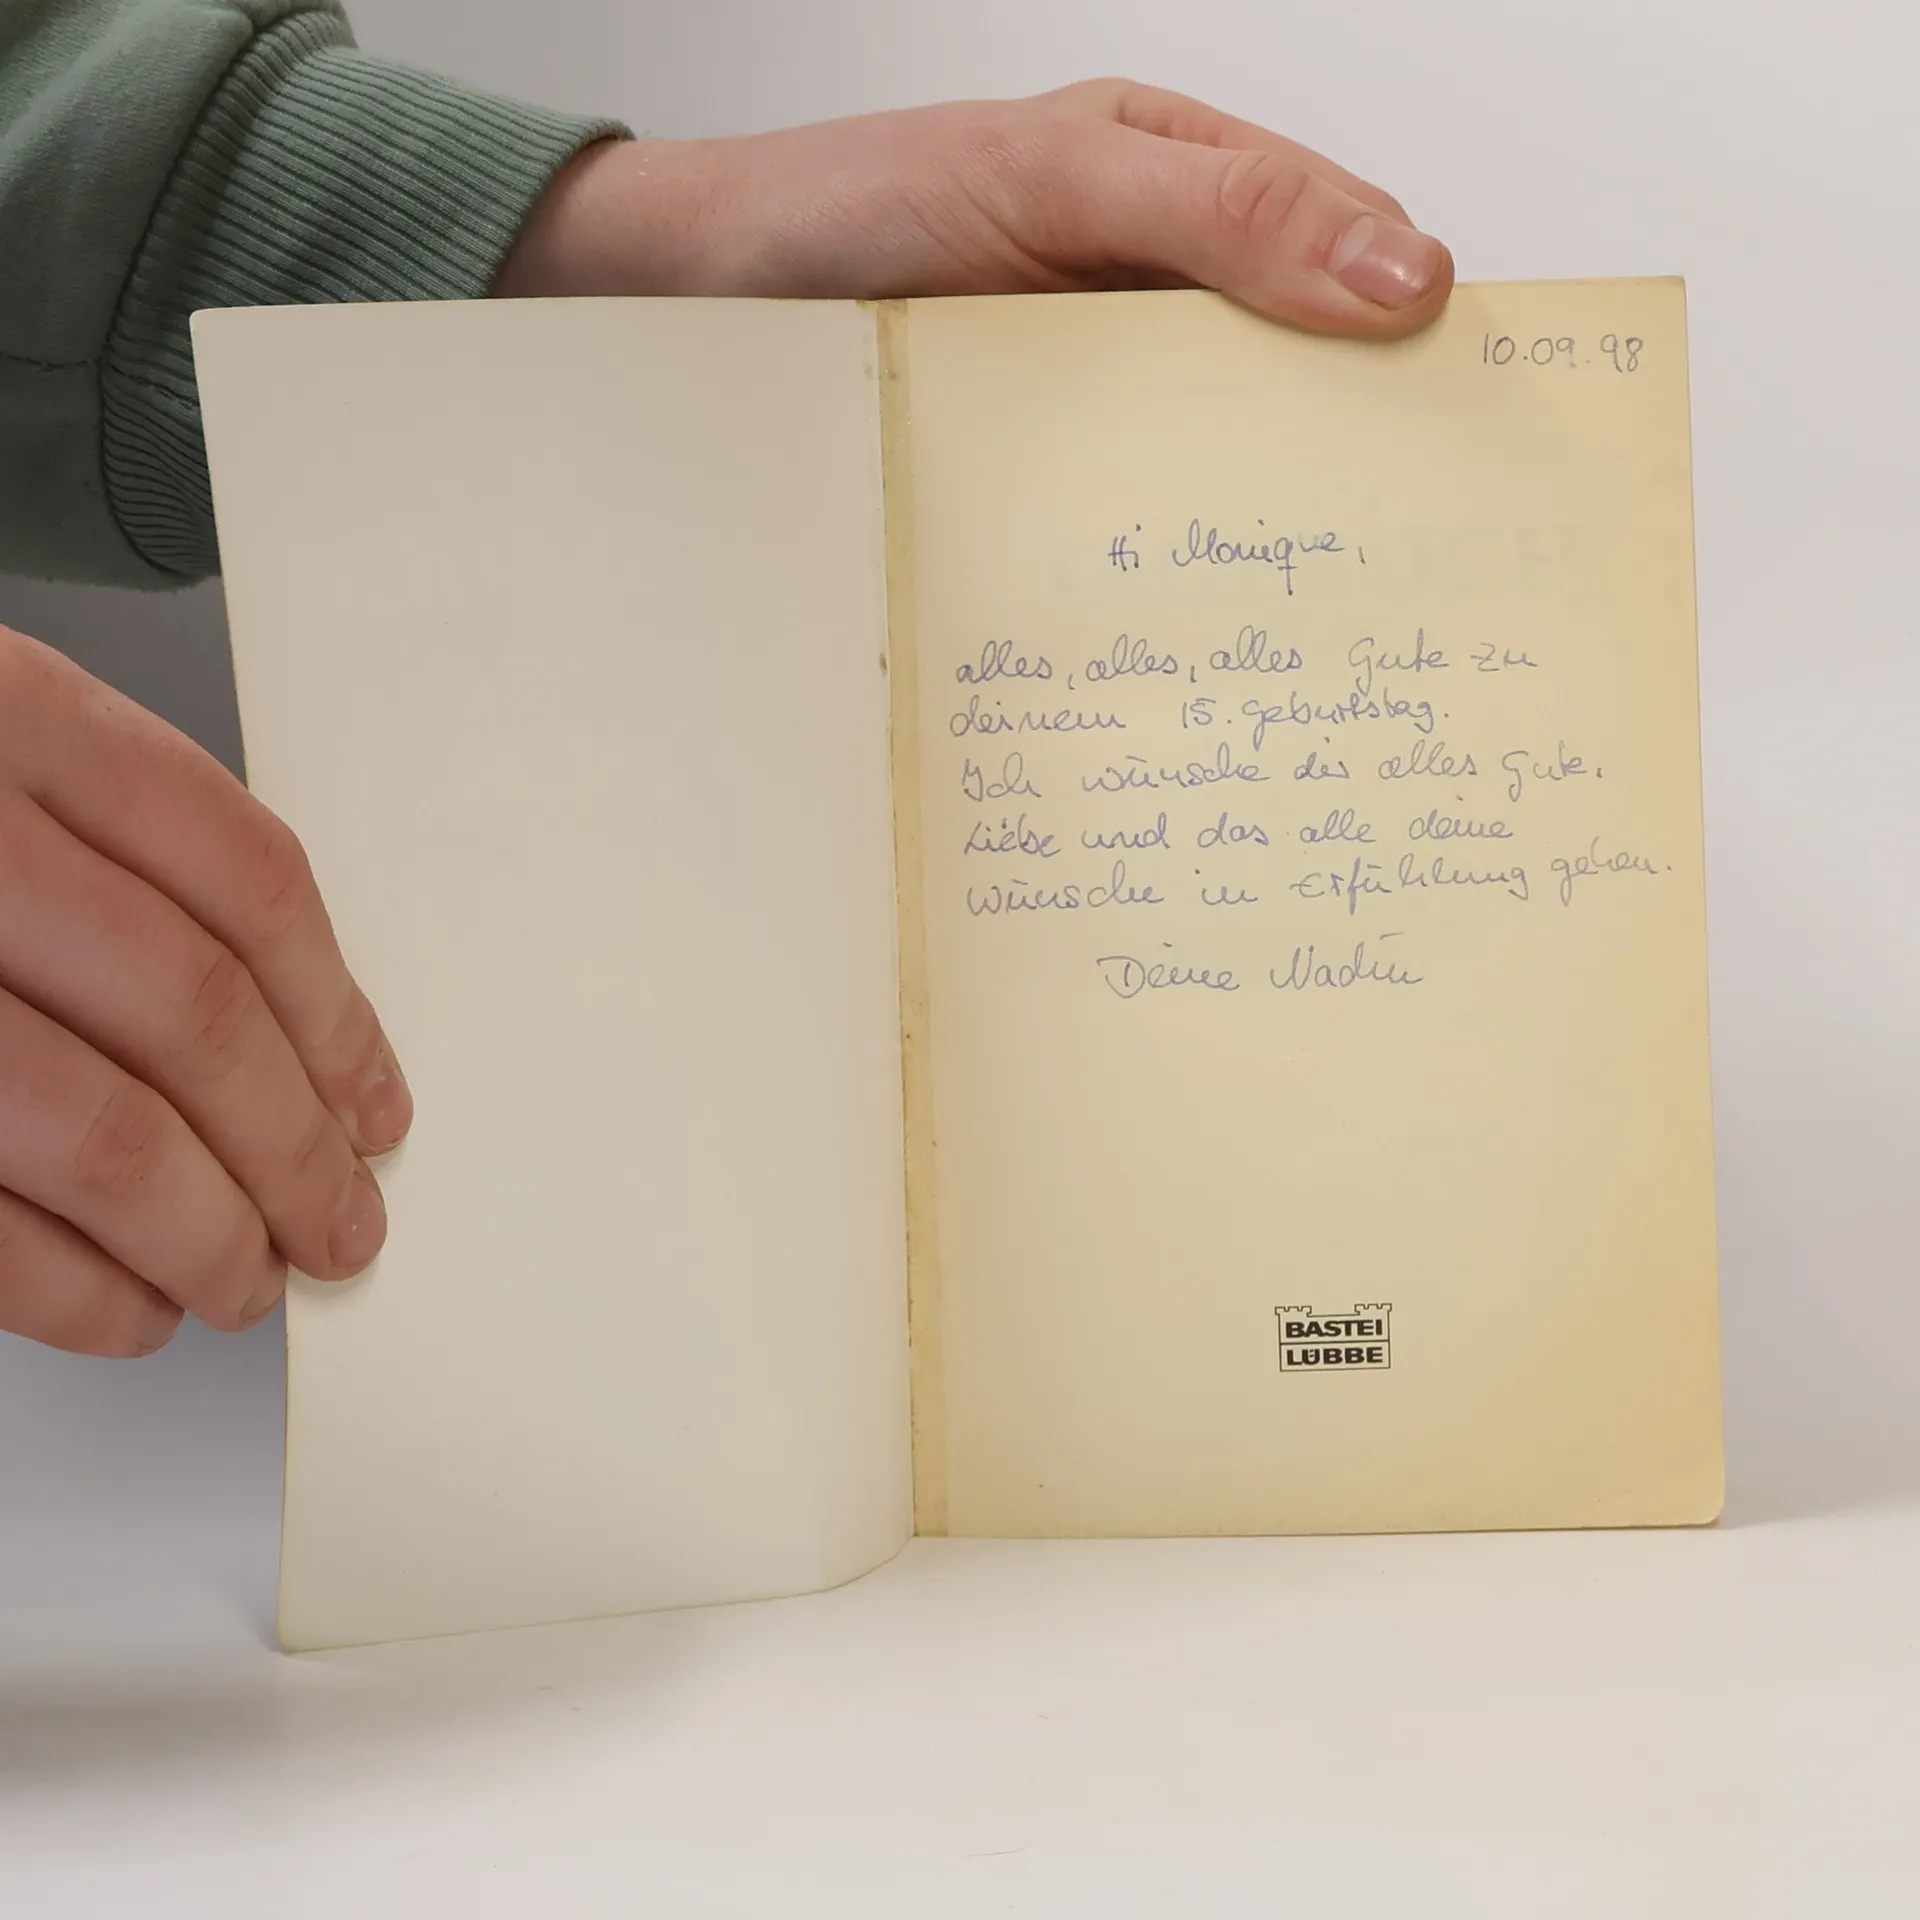 10.09.98
Hi Monique,
alles, alles, alles Gute zu
deinem 15. Geburtstag.
Ich wünsche dir alles Gute,
Liebe und das alle deine
Wünsche in Erfühlung gehen.
Deine Nadin
BASTEI
LÜBBE